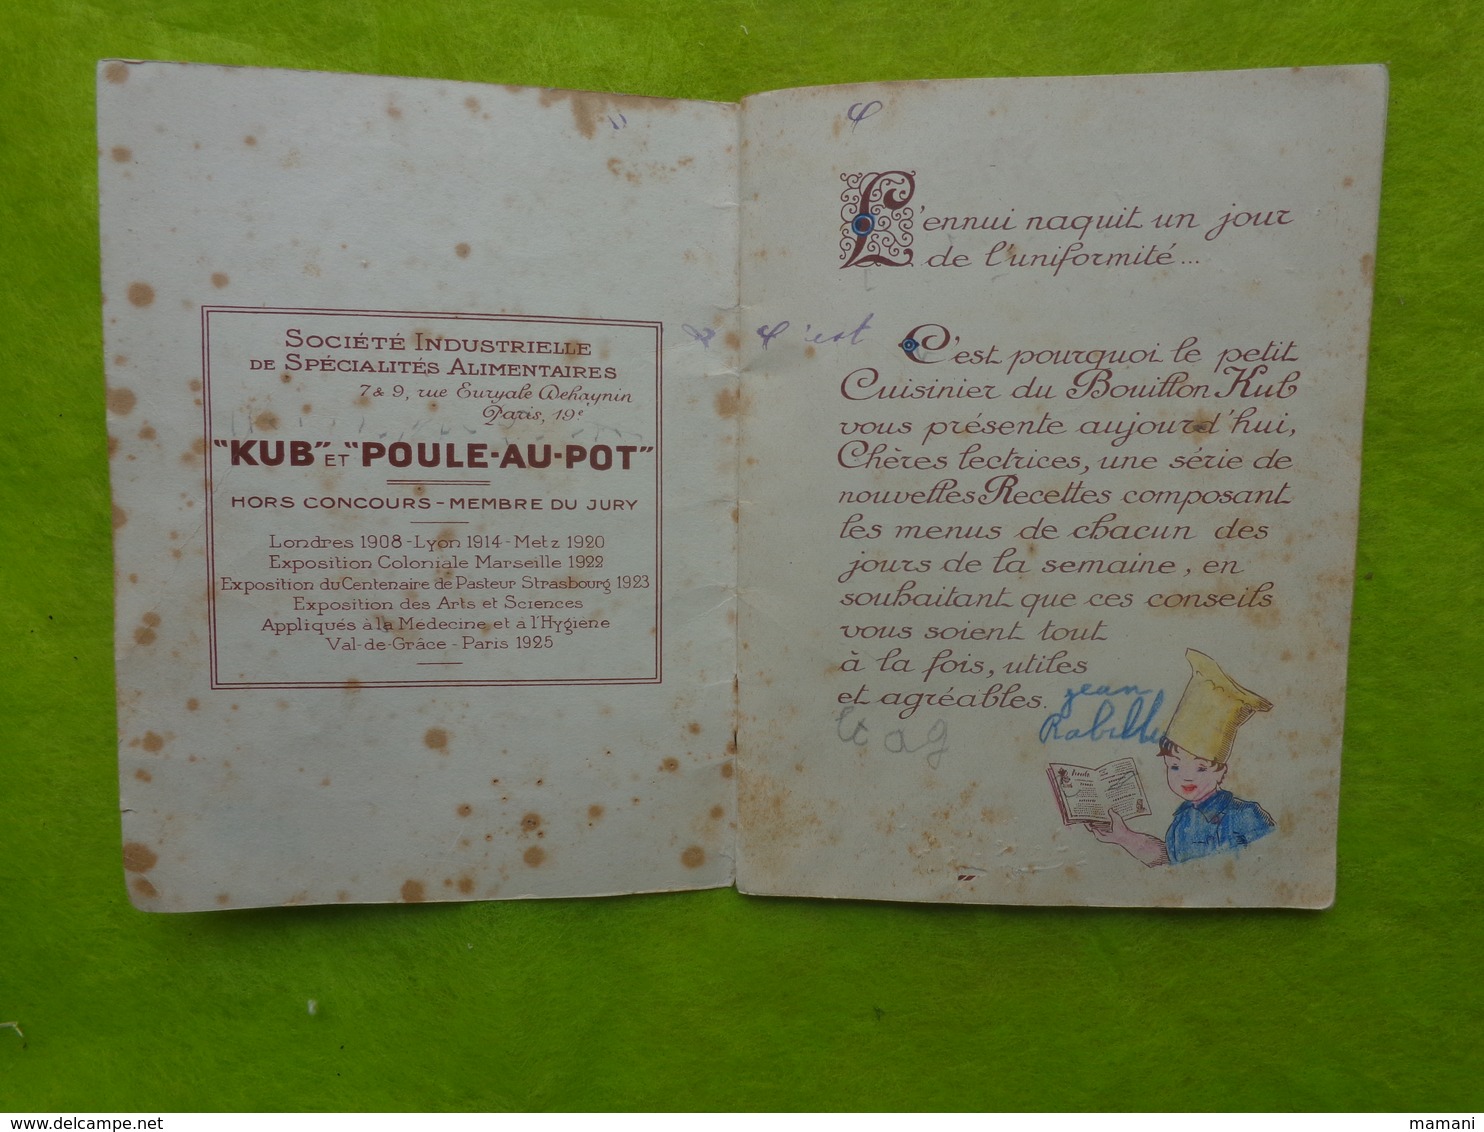 SOCIÉTÉ INDUSTRIELLE
DE SPÉCIALITÉS ALIMENTAIRES
7 & 9, rue Euryale Dehaynin
Paris, 19e
"KUB" ET "POULE-AU-POT"
HORS CONCOURS - MEMBRE DU JURY
Londres 1908 - Lyon 1914 - Metz 1920
Exposition Coloniale Marseille 1922
Exposition du Centenaire de Pasteur Strasbourg 1923
Exposition des Arts et Sciences
Appliqués à la Medecine et à l'Hygiène
Val-de-Grâce - Paris 1925
L'ennui naquit un jour
de l'uniformité...
c'est
C'est pourquoi le petit
Cuisinier du Bouillon Kub
vous présente aujourd'hui,
Chères lectrices, une série de
nouvelles Recettes composant
les menus de chacun des
jours de la semaine, en
souhaitant que ces conseils
vous soient tout
à la fois, utiles
et agréables.
jean
et ag
mamani